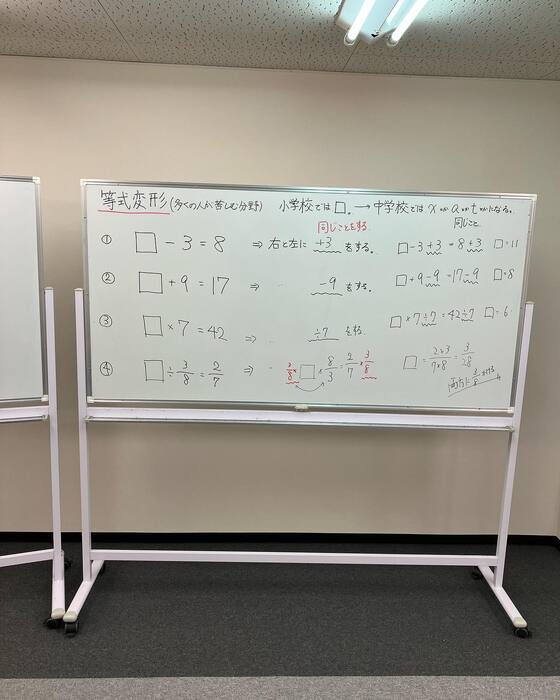 等式変形(多くの人が苦しむ分野) 小学校では□。→中学校ではxかaかtかになる。
同じことをする 同じこと
① □-3=8 ⇒ 右と左に +3 をする。 □-3+3=8+3 □=11
② □+9=17 ⇒ -9 をする。 □+9-9=17-9 □=8
③ □×7=42 ⇒ ÷7 をする。 □×7÷7=42÷7 □=6
④ □÷3/8=2/7 ⇒ 3/8× □×8/3=2/7×3/8 □=2×3/7×8=3/28
両方に3/8をかける